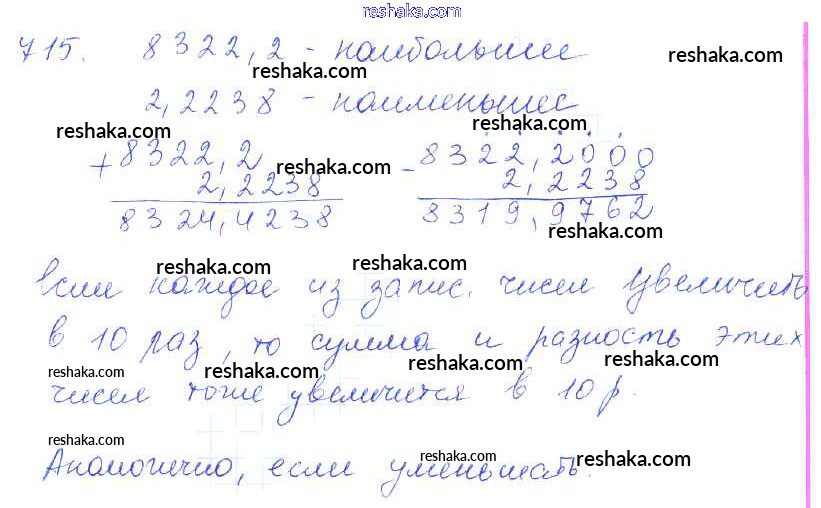 reshaka.com
715. 8322,2 - наибольшее
reshaka.com reshaka.com
2,2238 - наименьшее
reshaka.com
+8322,2 -8322,2000
reshaka.com
2,2238 2,2238
8324,4238 8319,9762
reshaka.com
reshaka.com reshaka.com
Если каждое из запис. чисел увеличить
в 10 раз, то сумма и разность этих
reshaka.com reshaka.com reshaka.com
чисел тоже увеличится в 10 р.
reshaka.com reshaka.com reshaka.com
Аналогично, если уменьшать.
reshaka.com